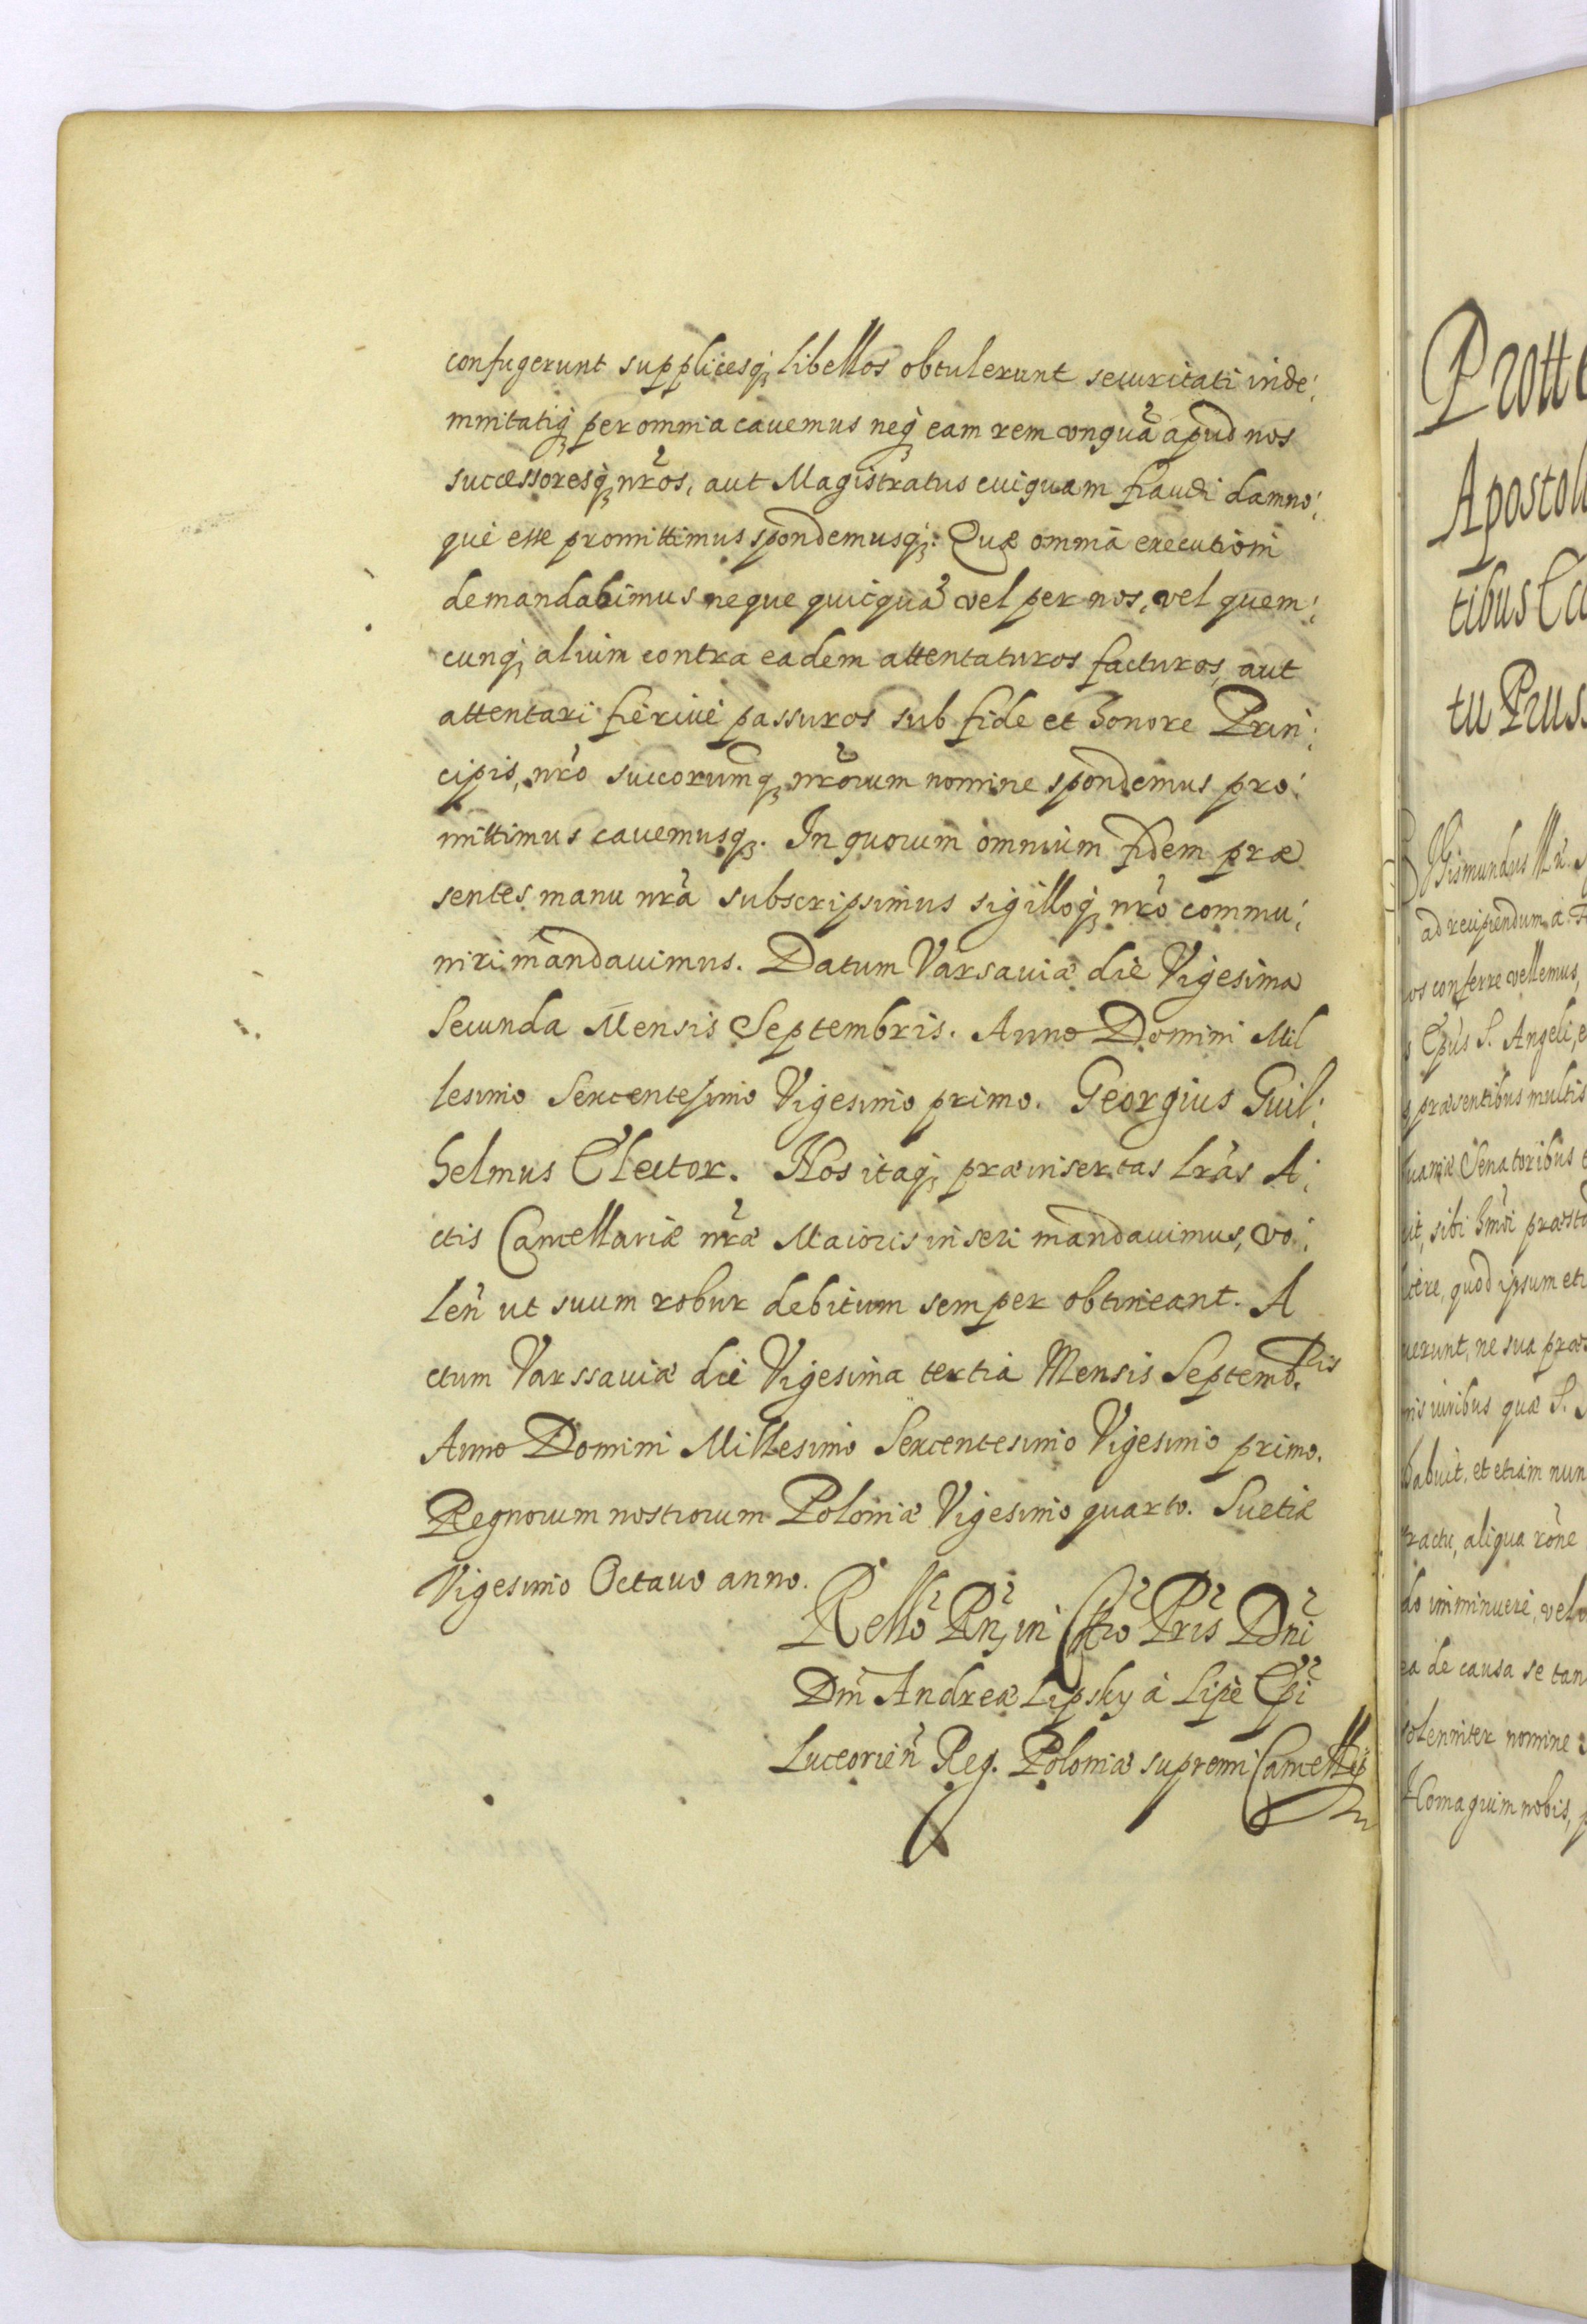 confugerunt supplicesq; libellos obtulerunt securitati inde:
mnitatiq; per omnia cauemus neq; eam rem vnquã apud nos
successoresq; nr̃os, aut Magistratus cuiquam fraudi damno:
que esse promittimus spondemusq;. Quæ omnia executioni
demandabimus neque quicquã vel per nos, vel quem:
cunq; alium contra eadem attentaturos facturos, aut
attentari fieriue passuros sub fide et honore Prin:
cipis, nr̃o succorumq; nr̃orum nomine spondemus pro:
mittimus cauemusq;. In quorum omnium fidem præ
sentes manu nr̃a subscripsimus sigilloq; nr̃o commu:
niri mandauimus. Datum Varsauiæ die Vigesima
Secunda Mensis Septembris. Anno Domini Mil
lesimo Sexcentesimo Vigesimo primo. Georgius Guil:
helmus Elector. Nos itaq; præinsertas lr̃as A:
ctis Cancellariæ nr̃æ Maioris inseri mandauimus, vo:
leñ ut suum robur debitum semper obtineant. A
ctum Varssauiæ die Vigesima tertia Mensis Septemb.ris
Anno Domini Millesimo Sexcentesimo Vigesimo primo.
Regnorum nostrorum Poloniæ Vigesimo quarto. Suetiæ
Vigesimo Octauo anno.
Rello Rñ, in Chro Pris Dñi
Dñi Andreæ Lipsky à Lipe Epĩ
Luceorieñ Reg. Poloniæ supremi Cancellrij
Protte
Apostoli
tibus
tu Pruss
ad recipiendum a
os conferre vellemus,
Ep̃us S. Angeli, e
præsentibus multis
uaniæ Senatoribus
it, sibi hm̃oi præsta
cere, quod ipsum eti
uerunt, ne sua præs
nis iuribus quæ S.
habuit, et etiam nun
tractu, aliqua rõne
do imminuere, vel
ea de causa se tan
solenniter nomine
Homagium nobis, p